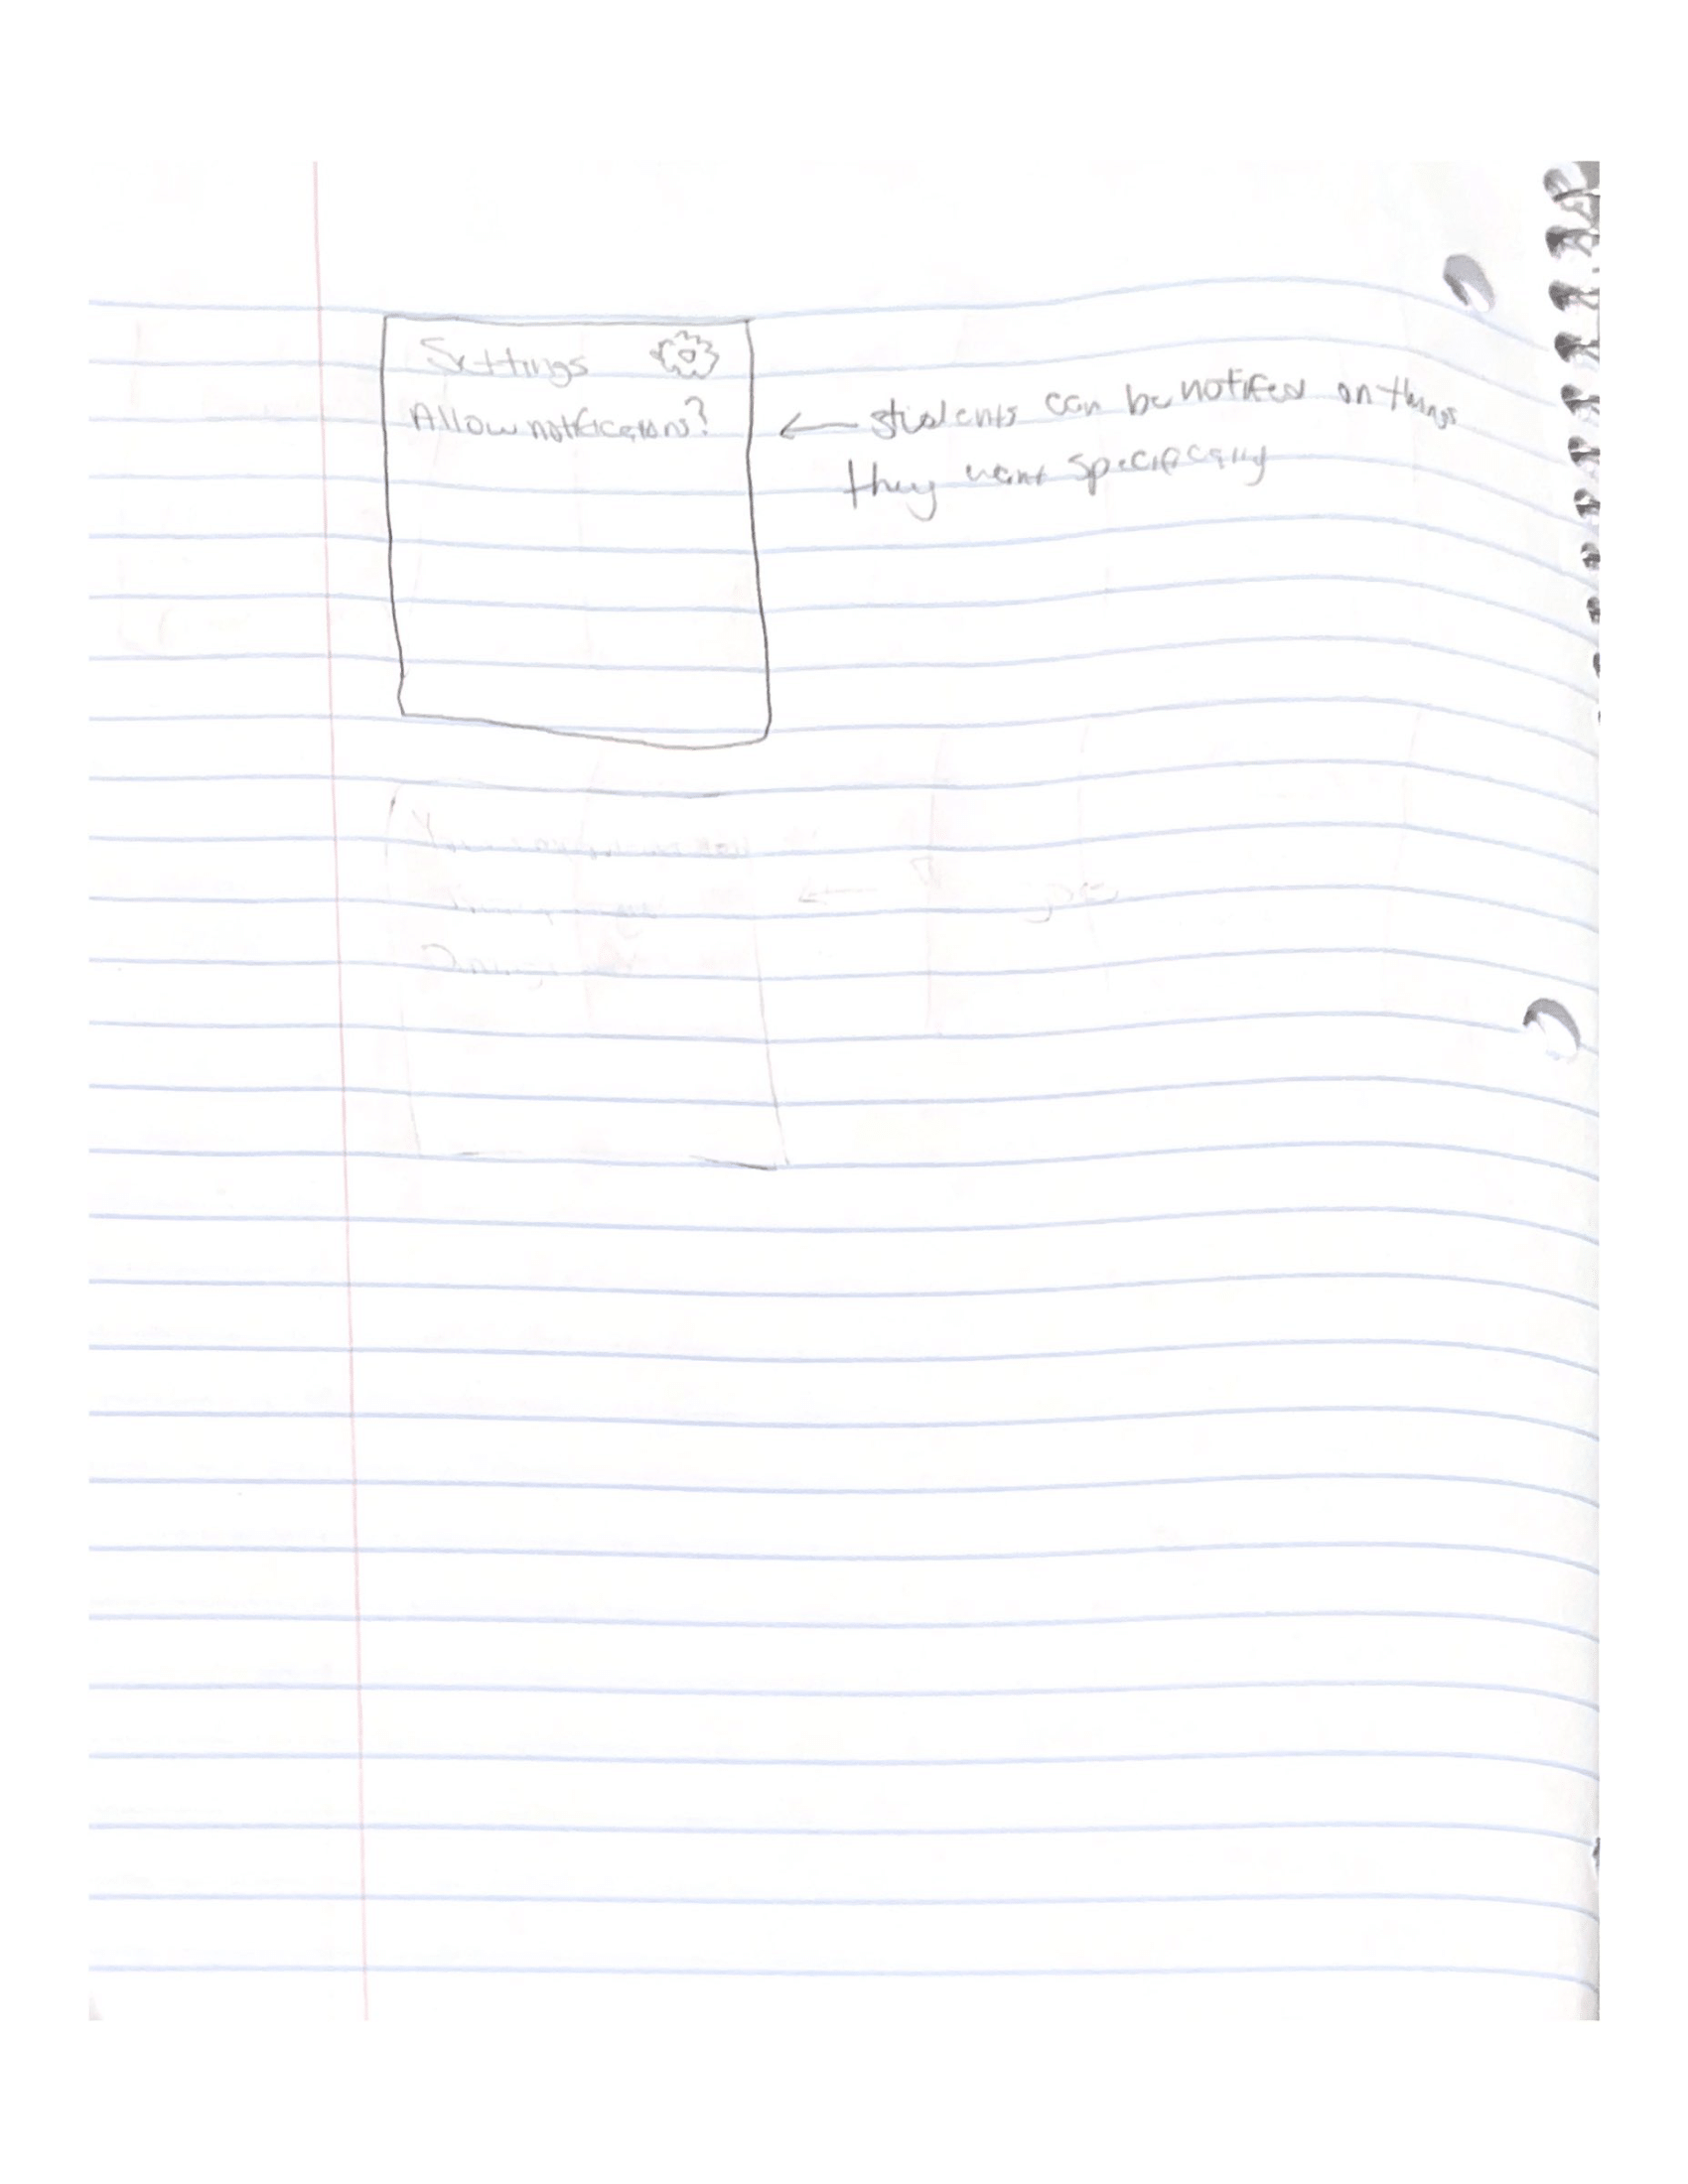 Settings
Allow notifications?
← students can be notified on things
they want specifically